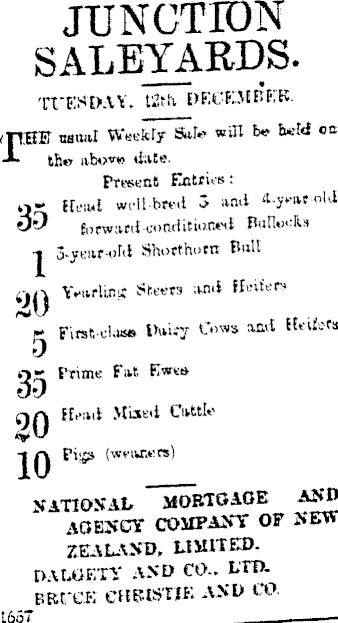 JUNCTION
SALEYARDS.
TUESDAY, 12th DECEMBER.
THE usual Weekly Sale will be held on
the above date.
Present Entries:
35 Head well-bred 3 and 4-year-old
forward-conditioned Bullocks
1 3-year-old Shorthorn Bull
20 Yearling Steers and Heifers
5 First-class Dairy Cows and Heifers
35 Prime Fat Ewes
20 Head Mixed Cattle
10 Pigs (weaners)
NATIONAL MORTGAGE AND
AGENCY COMPANY OF NEW
ZEALAND, LIMITED.
DALGETY AND CO., LTD.
BRUCE CHRISTIE AND CO.
1657